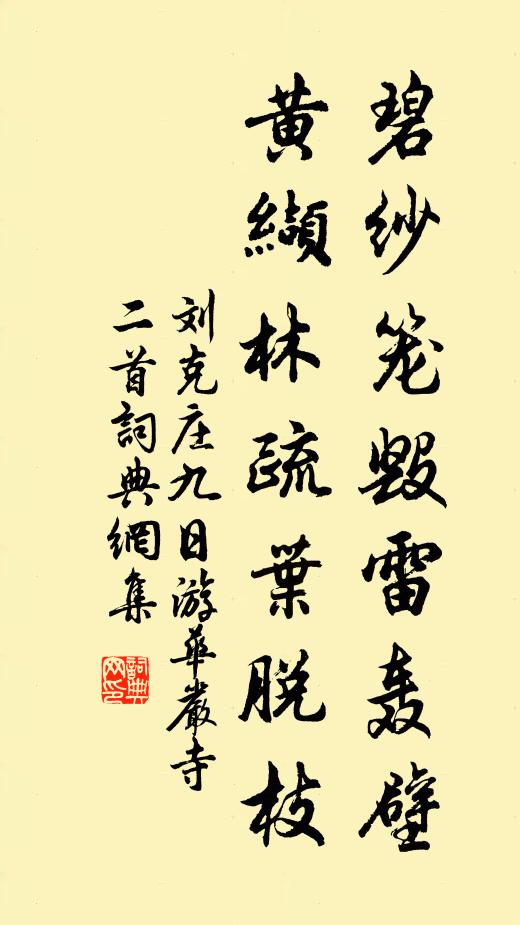 碧纱笼毁雷轰壁
黄纈林疏葉脱枝
刘克庄九日游華嚴寺
二首詞典網集
詞典
网印